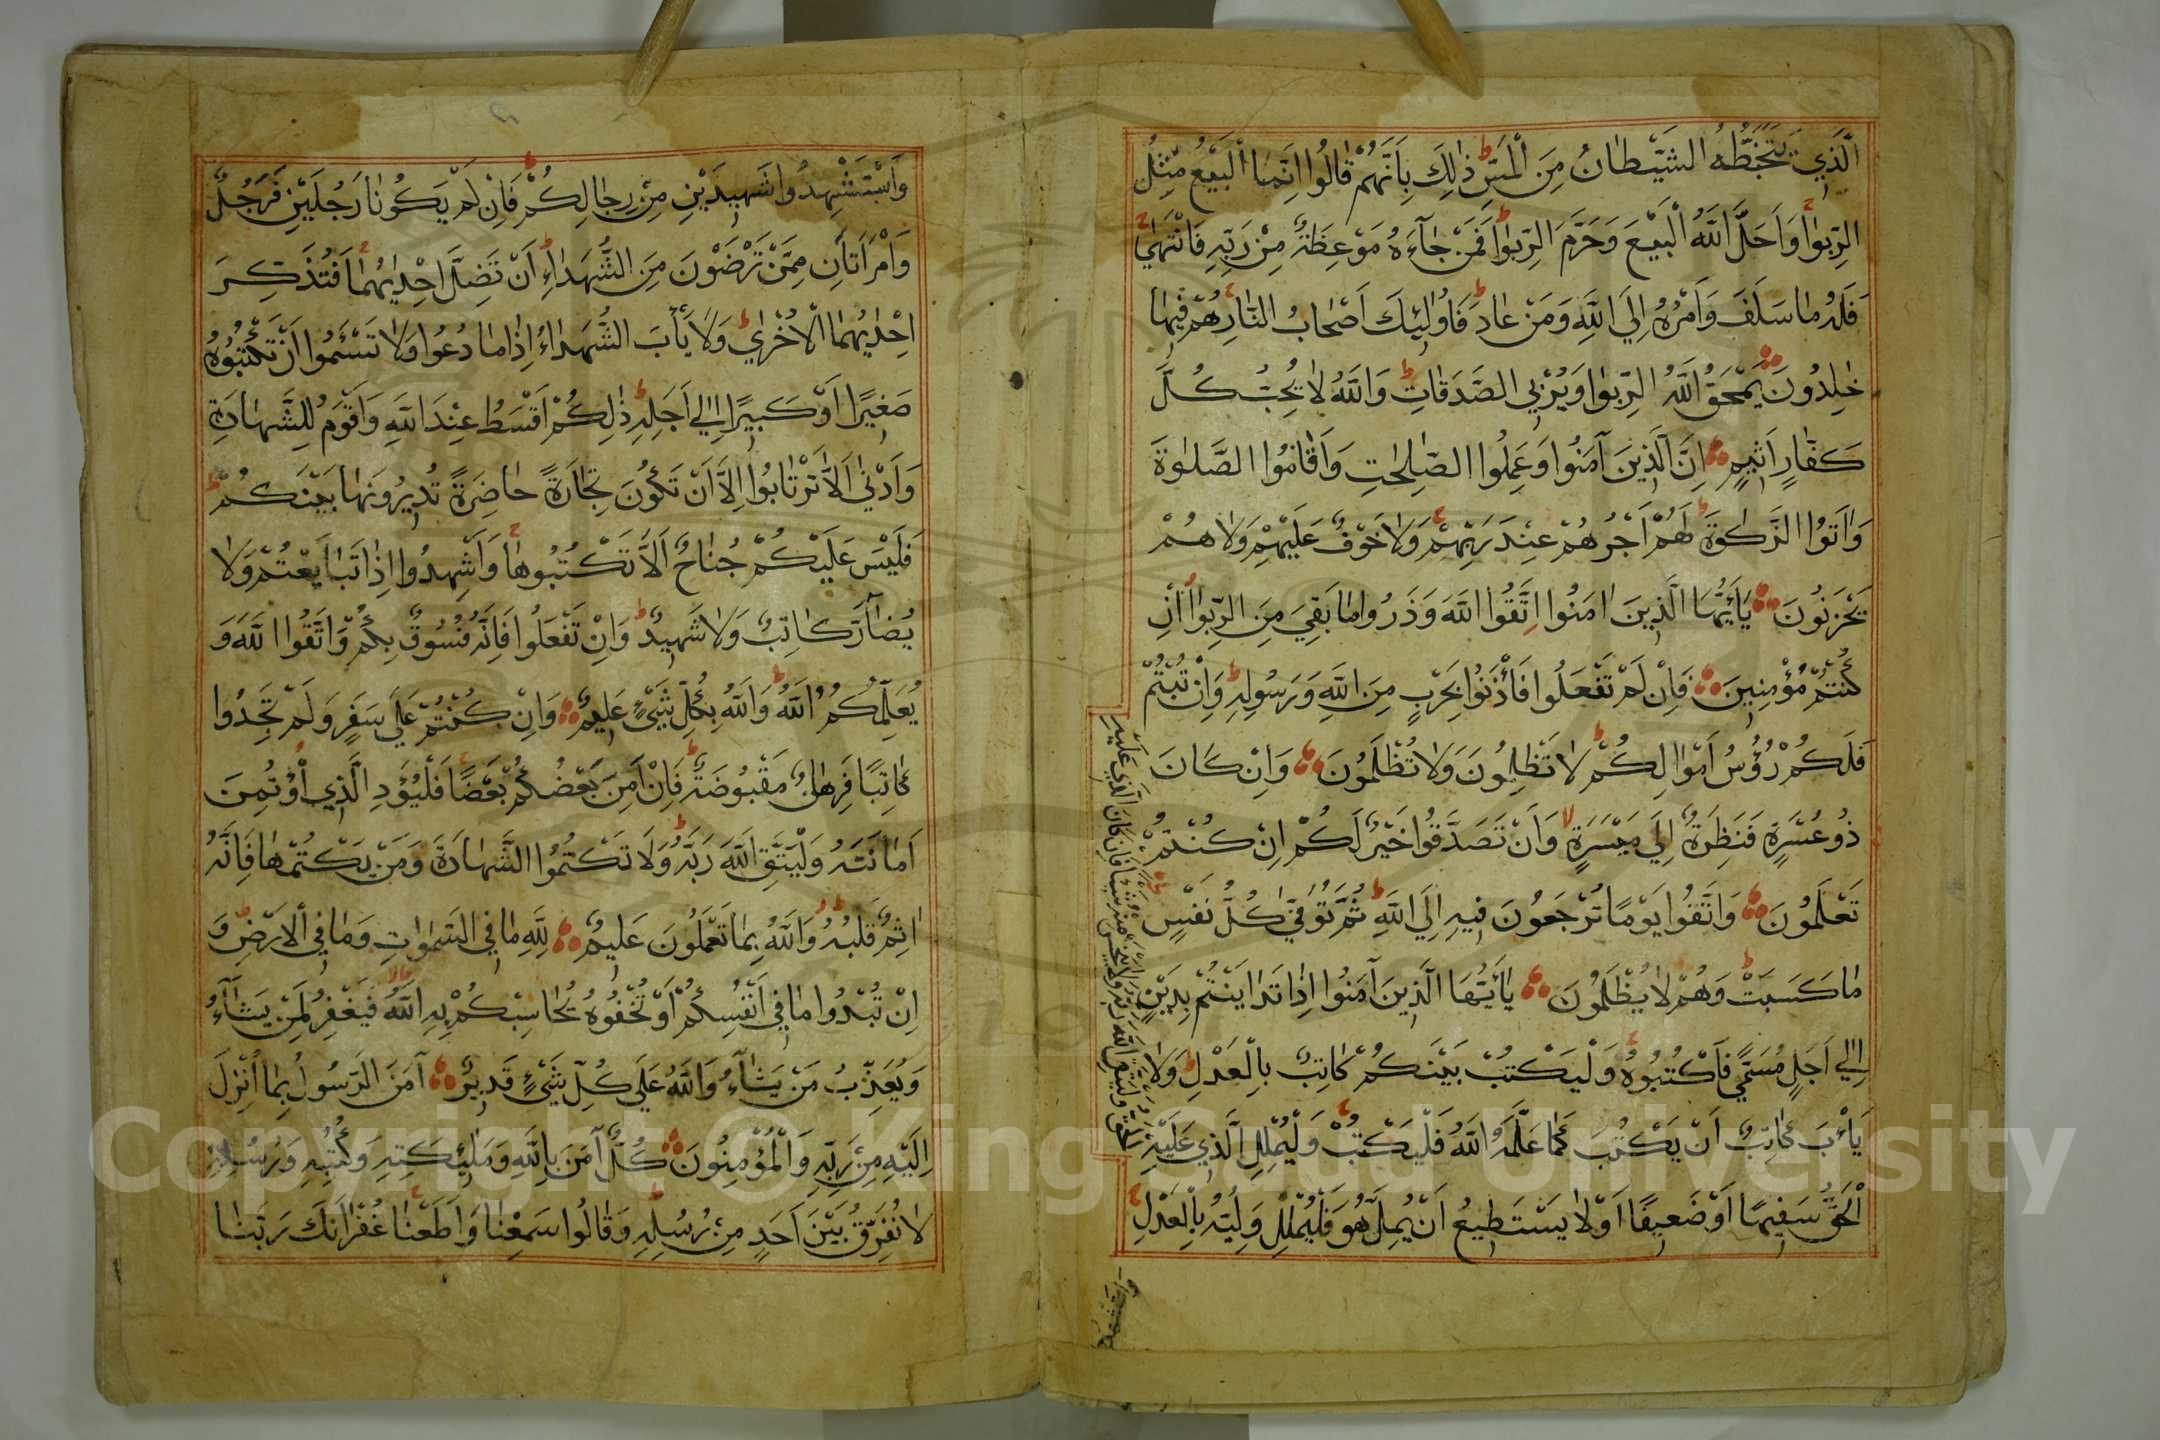 الَّذِي يَتَخَبَّطُهُ الشَّيْطَانُ مِنَ الْمَسِّ ط ذٰلِكَ بِاَنَّهُمْ قَالُوا اِنَّمَا الْبَيْعُ مِثْلُ
الرِّبٰوا وَاَحَلَّ اللّٰهُ الْبَيْعَ وَحَرَّمَ الرِّبٰوا ط فَمَنْ جَآءَهُ مَوْعِظَةٌ مِنْ رَبِّهِ فَانْتَهٰى
فَلَهُ مَا سَلَفَ وَاَمْرُهُ اِلَى اللّٰهِ وَمَنْ عَادَ فَاُولٰئِكَ اَصْحَابُ النَّارِ هُمْ فِيهَا
خٰلِدُونَ يَمْحَقُ اللّٰهُ الرِّبٰوا وَيُرْبِي الصَّدَقَاتِ ط وَاللّٰهُ لَا يُحِبُّ كُلَّ
كَفَّارٍ اَثِيمٍ اِنَّ الَّذِينَ آمَنُوا وَعَمِلُوا الصّٰلِحٰتِ وَاَقَامُوا الصَّلٰوةَ
وَاٰتَوُا الزَّكٰوةَ لَهُمْ اَجْرُهُمْ عِنْدَ رَبِّهِمْ وَلَا خَوْفٌ عَلَيْهِمْ وَلَا هُمْ
يَحْزَنُونَ يَا اَيُّهَا الَّذِينَ اٰمَنُوا اتَّقُوا اللّٰهَ وَذَرُوا مَا بَقِيَ مِنَ الرِّبٰوا اِنْ
كُنْتُمْ مُؤْمِنِينَ فَاِنْ لَمْ تَفْعَلُوا فَأْذَنُوا بِحَرْبٍ مِنَ اللّٰهِ وَرَسُولِهِ ط وَاِنْ تُبْتُمْ
فَلَكُمْ رُؤُسُ اَمْوَالِكُمْ ط لَا تَظْلِمُونَ وَلَا تُظْلَمُونَ وَاِنْ كَانَ
ذُو عُسْرَةٍ فَنَظِرَةٌ اِلَى مَيْسَرَةٍ وَاَنْ تَصَدَّقُوا خَيْرٌ لَكُمْ اِنْ كُنْتُمْ
تَعْلَمُونَ وَاتَّقُوا يَوْمًا تُرْجَعُونَ فِيهِ اِلَى اللّٰهِ ط ثُمَّ تُوَفّٰى كُلُّ نَفْسٍ
مَا كَسَبَتْ ط وَهُمْ لَا يُظْلَمُونَ يَا اَيُّهَا الَّذِينَ آمَنُوا اِذَا تَدَايَنْتُمْ بِدَيْنٍ
اِلٰى اَجَلٍ مُسَمًّى فَاكْتُبُوهُ ط وَلْيَكْتُبْ بَيْنَكُمْ كَاتِبٌ بِالْعَدْلِ وَلَا
يَأْبَ كَاتِبٌ اَنْ يَكْتُبَ كَمَا عَلَّمَهُ اللّٰهُ فَلْيَكْتُبْ وَلْيُمْلِلِ الَّذِي عَلَيْهِ
الْحَقُّ سَفِيهًا اَوْ ضَعِيفًا اَوْ لَا يَسْتَطِيعُ اَنْ يُمِلَّ هُوَ فَلْيُمْلِلْ وَلِيُّهُ بِالْعَدْلِ
الحق وليتق الله ربه ولا يبخس منه شيئا فان كان الذي عليه
وَاسْتَشْهِدُوا شَهِيدَيْنِ مِنْ رِجَالِكُمْ ط فَاِنْ لَمْ يَكُونَا رَجُلَيْنِ فَرَجُلٌ
وَامْرَاَتَانِ مِمَّنْ تَرْضَوْنَ مِنَ الشُّهَدَاءِ اَنْ تَضِلَّ اِحْدٰيهُمَا فَتُذَكِّرَ
اِحْدٰيهُمَا الْاُخْرٰى ط وَلَا يَأْبَ الشُّهَدَاءُ اِذَا مَا دُعُوا وَلَا تَسْئَمُوا اَنْ تَكْتُبُوهُ
صَغِيرًا اَوْ كَبِيرًا اِلٰى اَجَلِهِ ط ذٰلِكُمْ اَقْسَطُ عِنْدَ اللّٰهِ وَاَقْوَمُ لِلشَّهَادَةِ
وَاَدْنٰى اَلَّا تَرْتَابُوا اِلَّا اَنْ تَكُونَ تِجَارَةً حَاضِرَةً تُدِيرُونَهَا بَيْنَكُمْ ط
فَلَيْسَ عَلَيْكُمْ جُنَاحٌ اَلَّا تَكْتُبُوهَا وَاَشْهِدُوا اِذَا تَبَايَعْتُمْ وَلَا
يُضَآرَّ كَاتِبٌ وَلَا شَهِيدٌ ط وَاِنْ تَفْعَلُوا فَاِنَّهُ فُسُوقٌ بِكُمْ وَاتَّقُوا اللّٰهَ وَ
يُعَلِّمُكُمُ اللّٰهُ ط وَاللّٰهُ بِكُلِّ شَيْءٍ عَلِيمٌ وَاِنْ كُنْتُمْ عَلَى سَفَرٍ وَلَمْ تَجِدُوا
كَاتِبًا فَرِهَانٌ مَقْبُوضَةٌ ط فَاِنْ اَمِنَ بَعْضُكُمْ بَعْضًا فَلْيُؤَدِّ الَّذِي اؤْتُمِنَ
اَمَانَتَهُ وَلْيَتَّقِ اللّٰهَ رَبَّهُ ط وَلَا تَكْتُمُوا الشَّهَادَةَ وَمَنْ يَكْتُمْهَا فَاِنَّهُ
اٰثِمٌ قَلْبُهُ ط وَاللّٰهُ بِمَا تَعْمَلُونَ عَلِيمٌ لِلّٰهِ مَا فِي السَّمٰوَاتِ وَمَا فِي الْاَرْضِ وَ
اِنْ تُبْدُوا مَا فِي اَنْفُسِكُمْ اَوْ تُخْفُوهُ يُحَاسِبْكُمْ بِهِ اللّٰهُ فَيَغْفِرُ لِمَنْ يَشَآءُ
وَيُعَذِّبُ مَنْ يَشَآءُ وَاللّٰهُ عَلٰى كُلِّ شَيْءٍ قَدِيرٌ آمَنَ الرَّسُولُ بِمَا اُنْزِلَ
اِلَيْهِ مِنْ رَبِّهِ وَالْمُؤْمِنُونَ كُلٌّ آمَنَ بِاللّٰهِ وَمَلٰئِكَتِهِ وَكُتُبِهِ وَرُسُلِهِ
لَا نُفَرِّقُ بَيْنَ اَحَدٍ مِنْ رُسُلِهِ ط وَقَالُوا سَمِعْنَا وَاَطَعْنَا غُفْرَانَكَ رَبَّنَا
Copyright © King Saud University